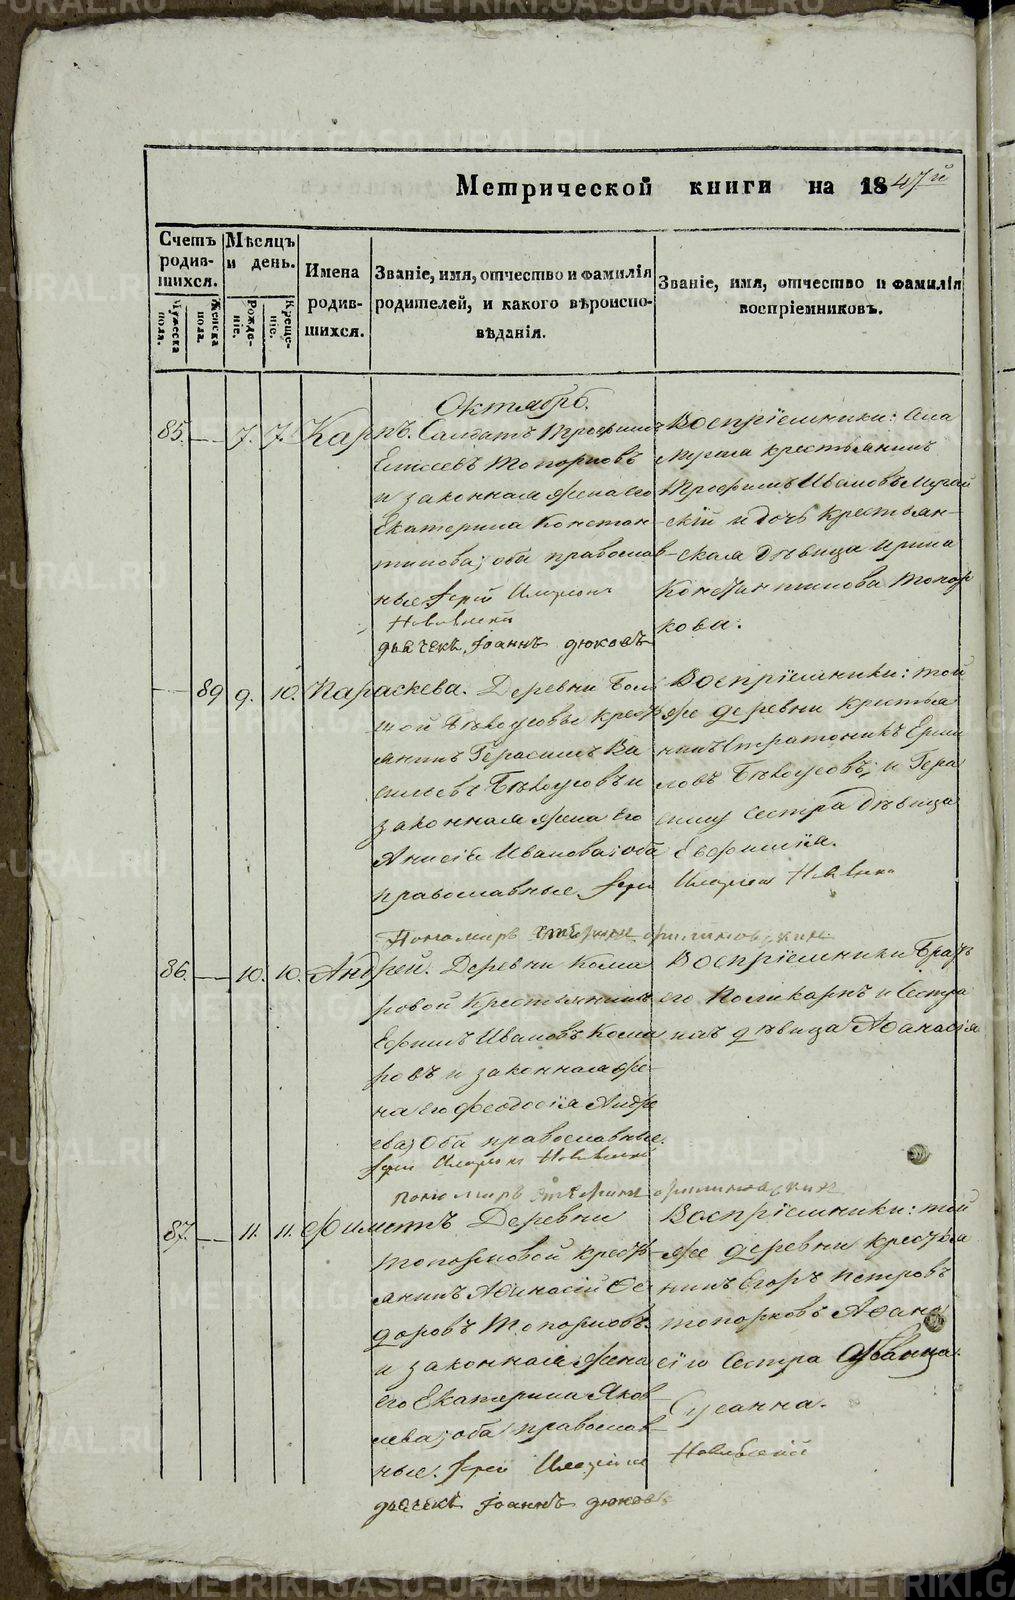 METRIKI.GASO-URAL.RU
Метрической книги на 1847й
Счетъ родив-шихся.
Мужеска пола.
Женска пола.
Мѣсяцъ и день.
Рожде-ніе.
Креще-ніе.
Имена родив-шихся.
Званіе, имя, отчество и фамилія
родителей, и какого вѣроиспо-
вѣданія.
Званіе, имя, отчество и фамилія
воспріемниковъ.
Октябрь.
85. 7. 7. Карпъ. Солдатъ Трофимъ
Елисеевъ Топорковъ
и законная жена его
Екатерина Констан-
тинова; оба православ-
ные. Іерей Иларіонъ
дьячекъ Іоаннъ Дюковъ
Воспріемники:
крестьянинъ
Трофимъ Ивановъ
скій и дочь крестьян-
ская дѣвица Ирина
Константинова Топор
кова.
89 9. 10. Параскева. Деревни Боль
шой Бѣлоусовы крест
янинъ Герасимъ Ва
сильевъ Бѣлоусовъ и
законная жена его
Анисія Иванова; оба
православные. Іерей Иларіонъ
Пономарь
Воспріемники: той
же деревни крестья
нинъ Стратоникъ Ерми
ловъ Бѣлоусовъ; и Гера
симу сестра дѣвица
Евфимія.
86. 10. 10. Андрей. Деревни Кома
ровой Крестьянинъ
Ефимъ Ивановъ Кома
ровъ и законная же-
на его Феодосія Андре
ева; Оба православные.
Іерей Иларіонъ
пономарь
Воспріемники Братъ
его Поликарпъ и Сестра
ихъ дѣвица Афанасія
87. 11. 11. Филиетъ Деревни
Топорковой крест-
янинъ Афанасій Фе
доровъ Топорковъ.
и законная жена
его Екатерина Яков
лева; оба православ-
ные. Іерей Иларіонъ
дьячекъ Іоаннъ Дюковъ
Воспріемники: той
же деревни крестья
нинъ Егоръ Петровъ
топорковъ Афана
сію Сестра дѣвица
Сусанна.